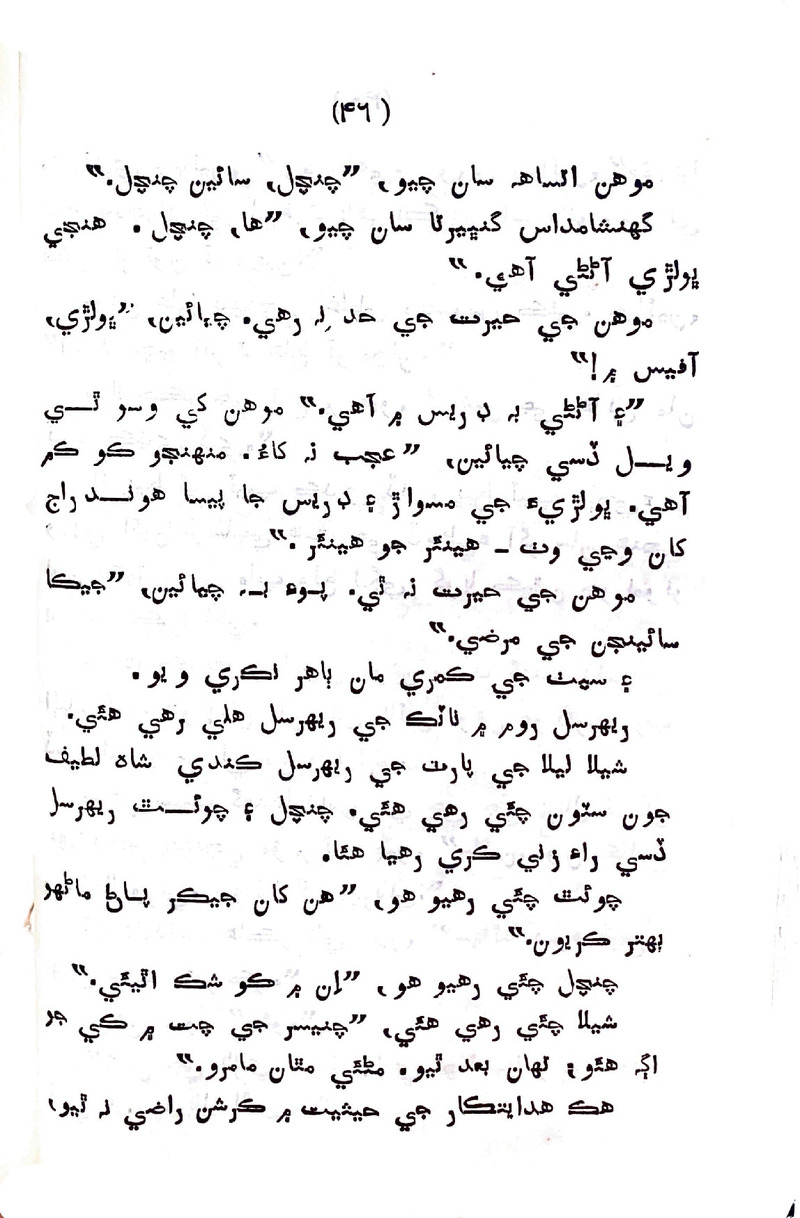 (۴۶)
موهن اتساهہ سان چيو، ”چنچل، سائين چنچل.“
گهنشامداس گنڀيرتا سان چيو، ”ها، چنچل. هنجي
ڀولڙي آڻڻي آهي.“
موهن جي حيرت جي حد نہ رهي. چيائين، ”ڀولڙي،
آفيس ۾!“
”۽ آڻڻي بہ ڊريس ۾ آهي.“ موهن کي وسو ٿي
ويل ڏسي چيائين، ”عجب نہ کاءُ. منهنجو ڪو ڪم
آهي. ڀولڙيءَ جي مسواڙ ۽ ڊريس جا پيسا هوندراج
کان وڃي وٺ - هينئر جو هينئر.“
موهن جي حيرت نہ ٿي. پوءِ بہ چيائين، ”جيڪا
سائينجن جي مرضي.“
۽ سيٺ جي ڪمري مان ٻاهر نڪري ويو.
ريهرسل روم ۾ ناٽڪ جي ريهرسل هلي رهي هئي.
شيلا ليلا جي پارٽ جي ريهرسل ڪندي شاھ لطيف
جون سٽون چئي رهي هئي. چنچل ۽ چوئٿ ريهرسل
ڏسي راءِ زني ڪري رهيا هئا.
چوئٿ چئي رهيو هو، ”هن کان جيڪر پاڻ ماڻهو
بهتر ڪريون.“
چنچل چئي رهيو هو، ”اِن ۾ ڪو شڪ اٿيئي.“
شيلا چئي رهي هئي، ”چنيسر جي چت ۾ ڪي جو
اڳہ هئو؛ تهان بعد ٿيو. مٿان مامرو.“
هڪ هدايتڪار جي حيثيت ۾ ڪرشن راضي نہ ٿيو،